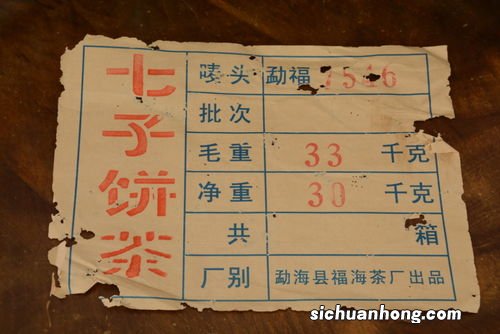 七子饼茶
唛头 勐福 7546
批次
毛重 33 千克
净重 30 千克
共 箱
厂别 勐海县福海茶厂出品
sichuanhong.com